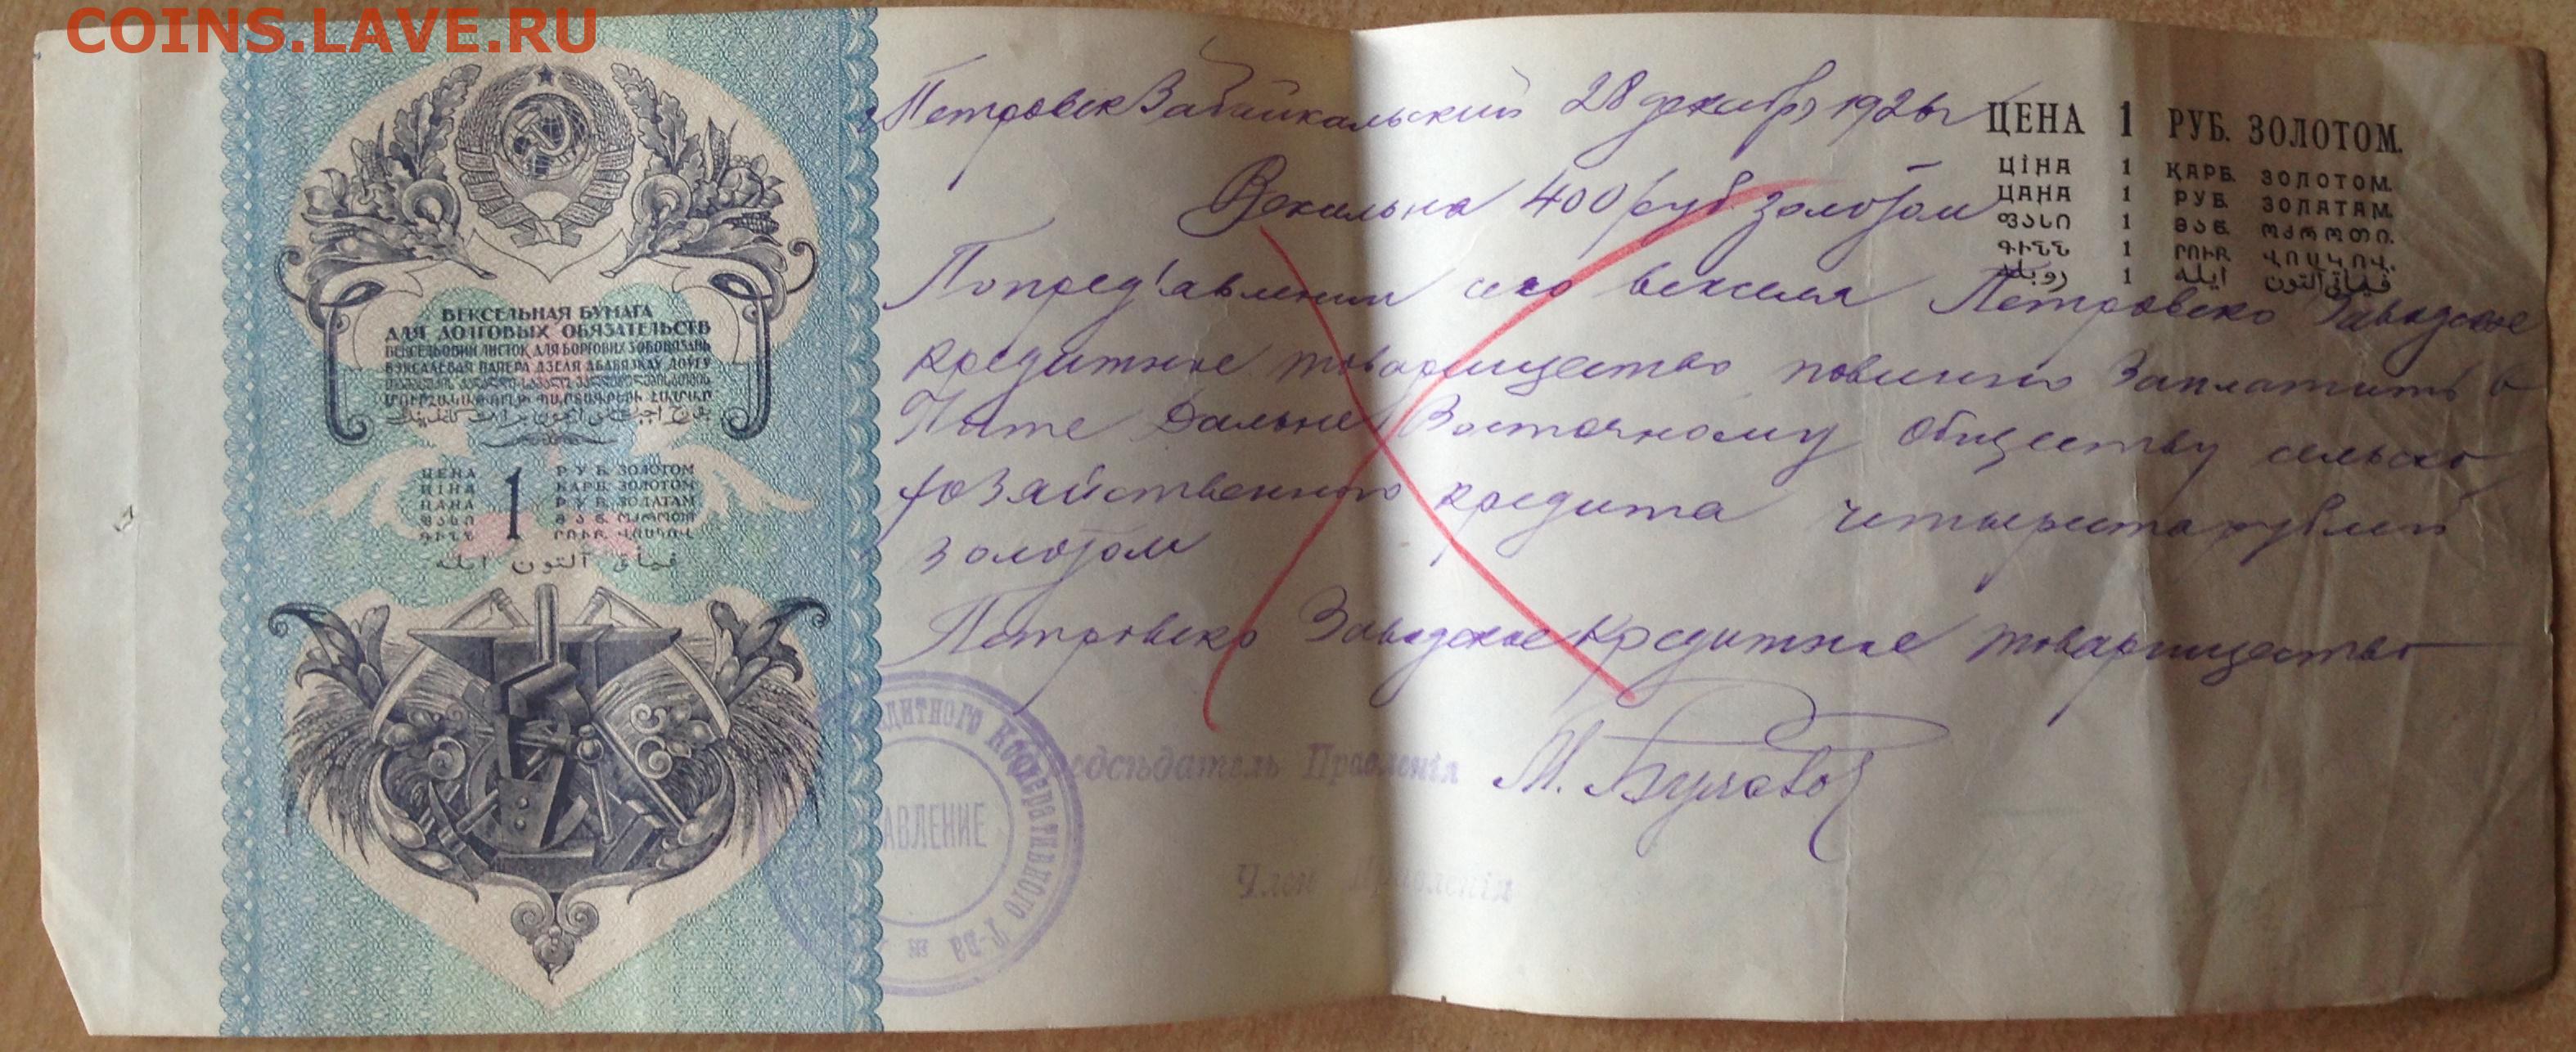 COINS.LAVE.RU
ВЕКСЕЛЬНАЯ БУМАГА
ДЛЯ ДОЛГОВЫХ ОБЯЗАТЕЛЬСТВ
ВЕКСЕЛЬОВИЙ ЛИСТОК ДЛЯ БОРГОВИХ ЗОБОВЯЗАНЬ
ВЭКСАЛЕВАЯ ПАПЕРА ДЗЕЛЯ АБАВЯЗКАУ ДОУГУ
ЦЕНА 1 РУБ. ЗОЛОТОМ
ЦІНА КАРБ. ЗОЛОТОМ
ЦАНА РУБ. ЗОЛАТАМ
ფასი მან. ოქროთი
ԳԻՆՆ ՌՈՒԲ. ՎՈՍԿՈՎ
Петровск Забайкальский 28 декабря 1926 г
ЦЕНА 1 РУБ. ЗОЛОТОМ.
ЦІНА 1 КАРБ. ЗОЛОТОМ.
ЦАНА 1 РУБ. ЗОЛАТАМ.
ფასი 1 მან. ოქროთი.
ԳԻՆՆ 1 ՌՈՒԲ. ՎՈՍԿՈՎ.
Вексель на 400 руб. золотом
По пред'явлении сего векселя Петровско Заводское
кредитное товарищество повинно заплатить в
Чите Дальне Восточному Обществу сельско
хозяйственного кредита четыреста рублей
золотом
Петровско Заводское Кредитное товарищество
Председатель Правленія М.
Член Правленія
КРЕДИТНОГО Кооперативного Т-ва
ПРАВЛЕНИЕ